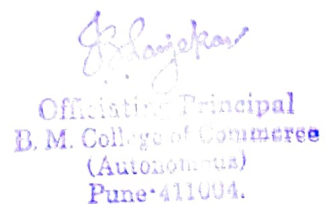 Officiating Principal
B. M. College of Commerce
(Autonomous)
Pune-411004.